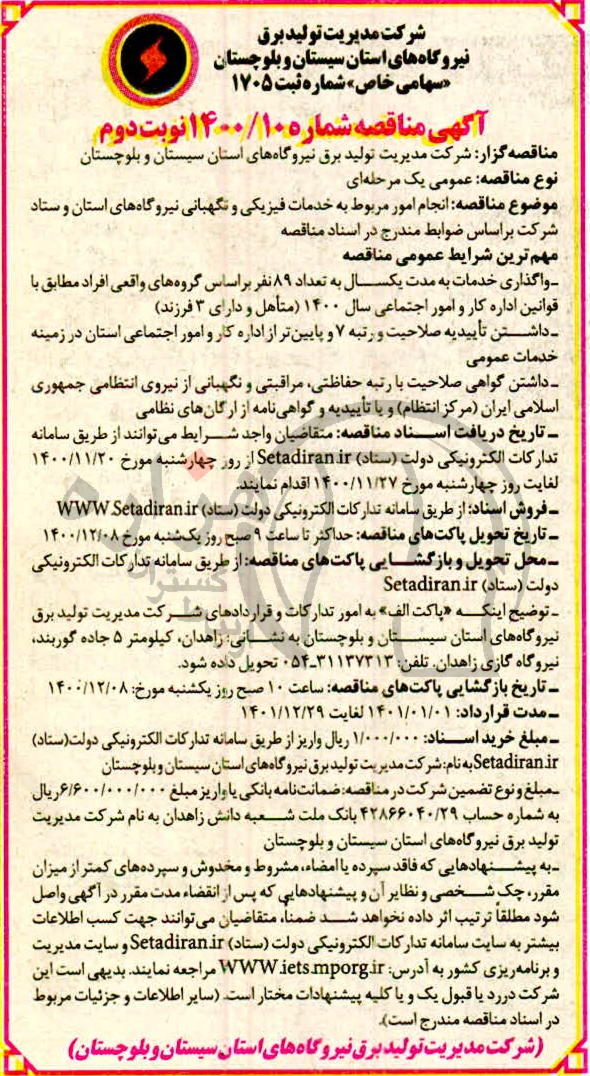 شرکت مدیریت تولید برق
نیروگاه‌های استان سیستان و بلوچستان
«سهامی خاص» شماره ثبت ۱۷۰۵
آگهی مناقصه شماره ۱۴۰۰/۱۰ نوبت دوم
مناقصه‌گزار: شرکت مدیریت تولید برق نیروگاه‌های استان سیستان و بلوچستان
نوع مناقصه: عمومی یک مرحله‌ای
موضوع مناقصه: انجام امور مربوط به خدمات فیزیکی و نگهبانی نیروگاه‌های استان و ستاد
شرکت براساس ضوابط مندرج در اسناد مناقصه
مهم‌ترین شرایط عمومی مناقصه
ـ واگذاری خدمات به مدت یکسال به تعداد ۸۹ نفر براساس گروه‌های واقعی افراد مطابق با
قوانین اداره کار و امور اجتماعی سال ۱۴۰۰ (متأهل و دارای ۳ فرزند)
ـ داشتن تأییدیه صلاحیت و رتبه ۷ و پایین‌تر از اداره کار و امور اجتماعی استان در زمینه
خدمات عمومی
ـ داشتن گواهی صلاحیت با رتبه حفاظتی، مراقبتی و نگهبانی از نیروی انتظامی جمهوری
اسلامی ایران (مرکز انتظام) و یا تأییدیه و گواهی‌نامه از ارگان‌های نظامی
ـ تاریخ دریافت اسناد مناقصه: متقاضیان واجد شرایط می‌توانند از طریق سامانه
تدارکات الکترونیکی دولت (ستاد) Setadiran.ir از روز چهارشنبه مورخ ۱۴۰۰/۱۱/۲۰
لغایت روز چهارشنبه مورخ ۱۴۰۰/۱۱/۲۷ اقدام نمایند.
ـ فروش اسناد: از طریق سامانه تدارکات الکترونیکی دولت (ستاد) WWW.Setadiran.ir
ـ تاریخ تحویل پاکت‌های مناقصه: حداکثر تا ساعت ۹ صبح روز یک‌شنبه مورخ ۱۴۰۰/۱۲/۰۸
ـ محل تحویل و بازگشایی پاکت‌های مناقصه: از طریق سامانه تدارکات الکترونیکی
دولت (ستاد) Setadiran.ir
ـ توضیح اینکه «پاکت الف» به امور تدارکات و قراردادهای شرکت مدیریت تولید برق
نیروگاه‌های استان سیستان و بلوچستان به نشانی: زاهدان، کیلومتر ۵ جاده گوربند،
نیروگاه گازی زاهدان. تلفن: ۳۱۱۳۷۳۱۳-۰۵۴ تحویل داده شود.
ـ تاریخ بازگشایی پاکت‌های مناقصه: ساعت ۱۰ صبح روز یکشنبه مورخ: ۱۴۰۰/۱۲/۰۸
ـ مدت قرارداد: ۱۴۰۱/۰۱/۰۱ لغایت ۱۴۰۱/۱۲/۲۹
ـ مبلغ خرید اسناد: ۱/۰۰۰/۰۰۰ ریال واریز از طریق سامانه تدارکات الکترونیکی دولت(ستاد)
Setadiran.ir به نام: شرکت مدیریت تولید برق نیروگاه‌های استان سیستان و بلوچستان
ـ مبلغ و نوع تضمین شرکت در مناقصه: ضمانت‌نامه بانکی یا واریز مبلغ ۶/۶۰۰/۰۰۰/۰۰۰ ریال
به شماره حساب ۴۲۸۶۶۰۴۰/۲۹ بانک ملت شعبه دانش زاهدان به نام شرکت مدیریت
تولید برق نیروگاه‌های استان سیستان و بلوچستان
ـ به پیشنهادهایی که فاقد سپرده یا امضاء، مشروط و مخدوش و سپرده‌های کمتر از میزان
مقرر، چک شخصی و نظایر آن و پیشنهادهایی که پس از انقضاء مدت مقرر در آگهی واصل
شود مطلقاً ترتیب اثر داده نخواهد شد ضمناً، متقاضیان می‌توانند جهت کسب اطلاعات
بیشتر به سایت سامانه تدارکات الکترونیکی دولت (ستاد) Setadiran.ir و سایت مدیریت
و برنامه‌ریزی کشور به آدرس: WWW.iets.mporg.ir مراجعه نمایند. بدیهی است این
شرکت در رد یا قبول یک و یا کلیه پیشنهادات مختار است. (سایر اطلاعات و جزئیات مربوط
در اسناد مناقصه مندرج است).
(شرکت مدیریت تولید برق نیروگاه‌های استان سیستان و بلوچستان)